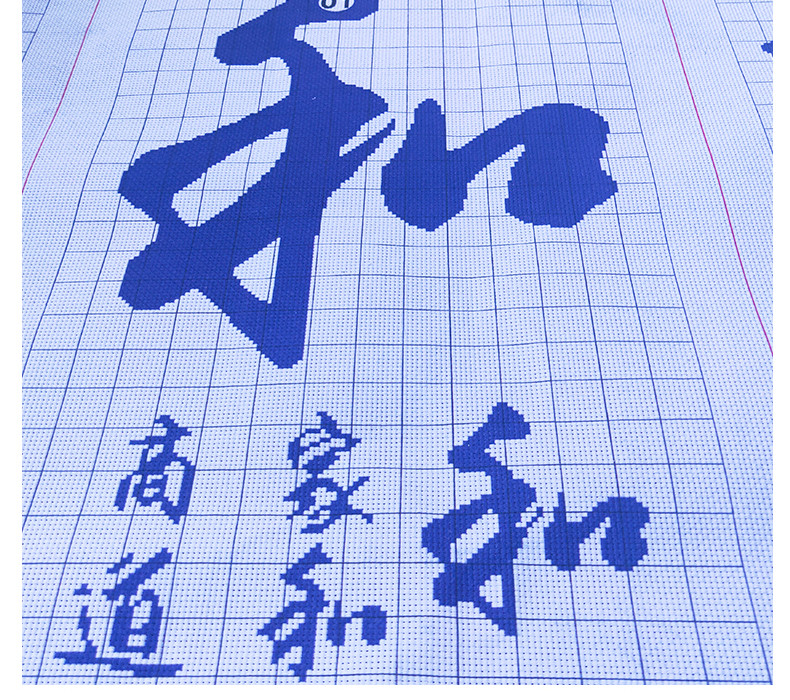 和
和
家和
商道